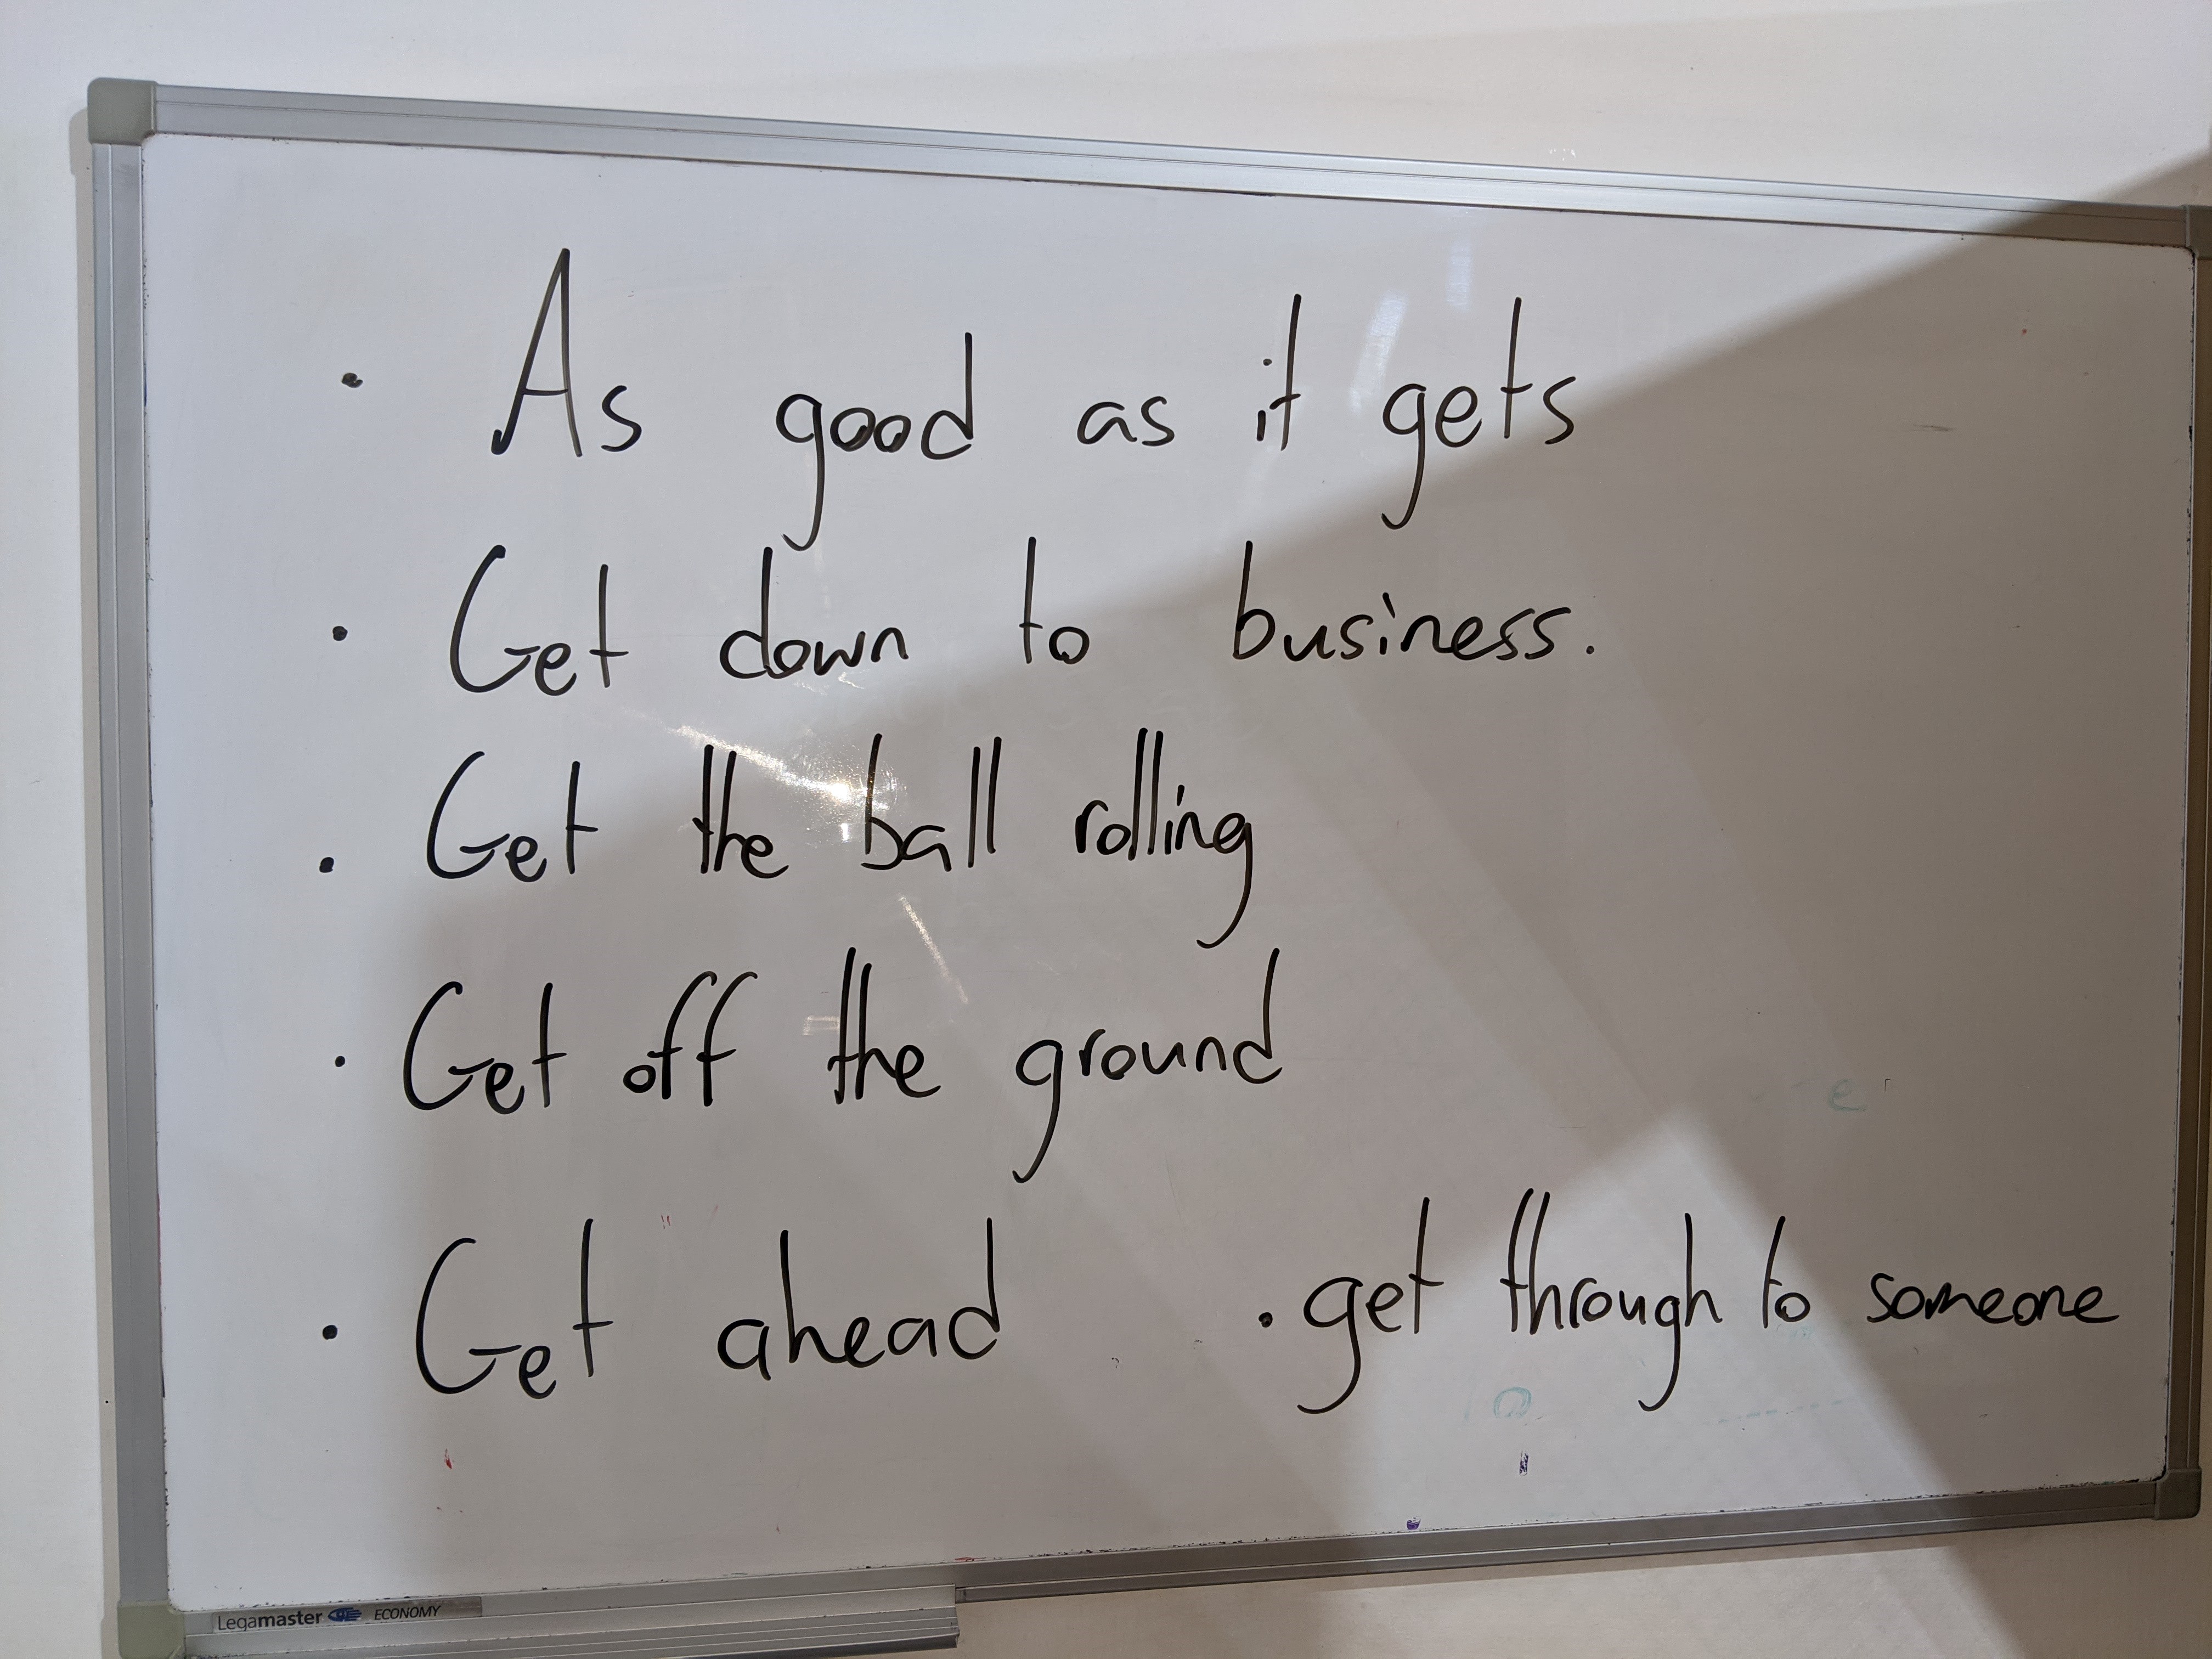 • As good as it gets
• Get down to business.
• Get the ball rolling
• Get off the ground
• Get ahead • get through to someone
Legamaster ECONOMY